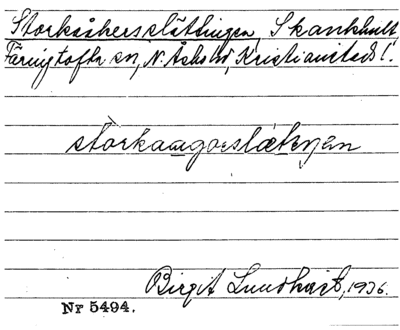 Storkaåkersslättingen, Skankhult
Färingtofta sn, N. Åsbo hd, Kristianstads l.
stòrkaŋgorslætenˌən
Birgit Lundqvist, 1936.
Nr 5494.